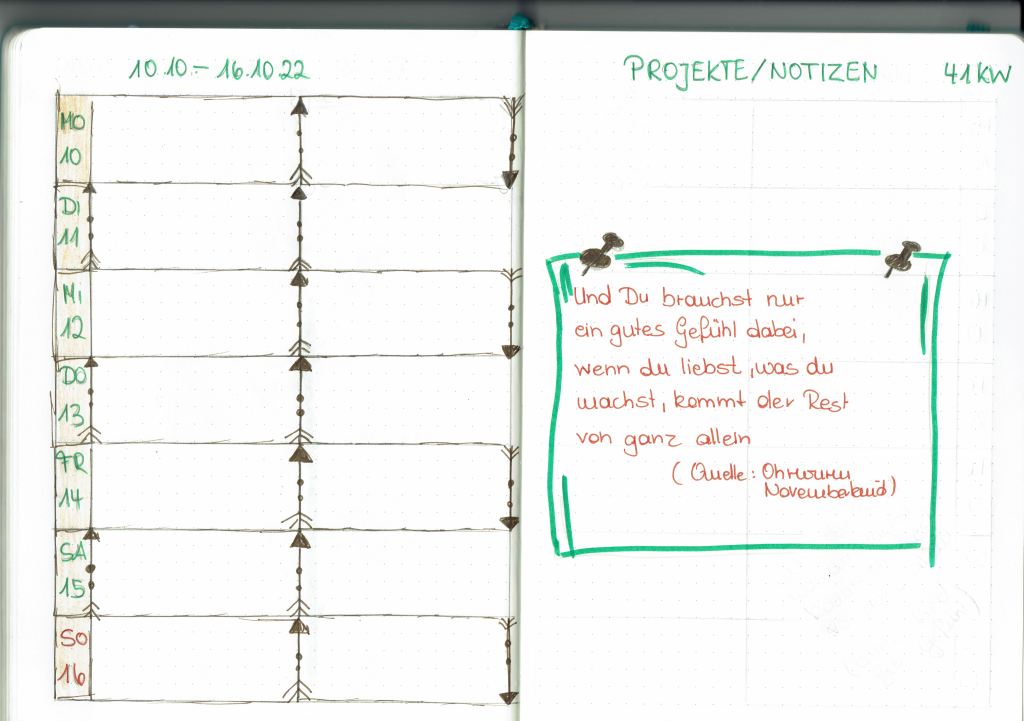 10.10 – 16.10 22
MO
10
DI
11
MI
12
DO
13
FR
14
SA
15
SO
16
PROJEKTE/NOTIZEN 41 KW
Und Du brauchst nur
ein gutes Gefühl dabei,
wenn du liebst, was du
machst, kommt der Rest
von ganz allein
(Quelle: Ohrwurm
Novemberkind)